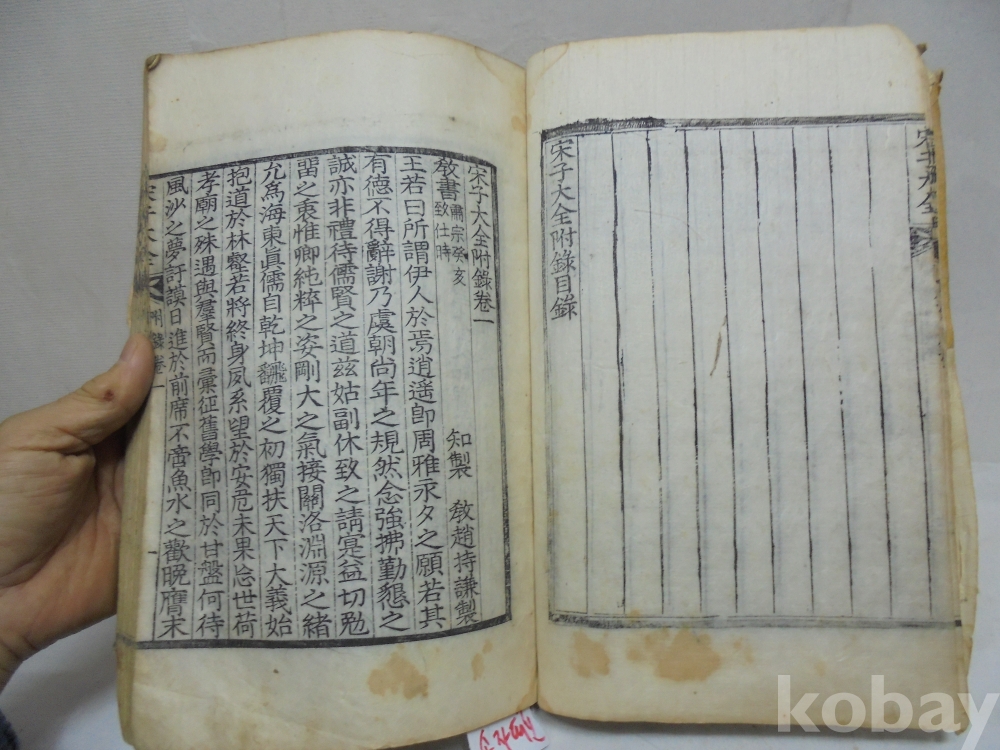 宋子大全附錄目錄
宋子大全附錄卷一
敎書 肅宗癸亥致仕時 知製 敎趙持謙製
王若曰所謂伊人於焉逍遥卽周雅永夕之願若其
有德不得辭謝乃虞朝尙年之規然念強拂勤懇之
誠亦非禮待儒賢之道玆姑副休致之請寔益切勉
留之衷惟卿純粹之姿剛大之氣接關洛淵源之緖
允爲海東眞儒自乾坤飜覆之初獨扶天下大義始
抱道於林壑若將終身夙系望於安危未果忘世荷
孝廟之殊遇與羣賢而彙征舊學卽同於甘盤何待
風沙之夢訏謨日進於前席不啻魚水之歡晩膺末
宋子大全 附錄卷一
一
宋子大全
kobay